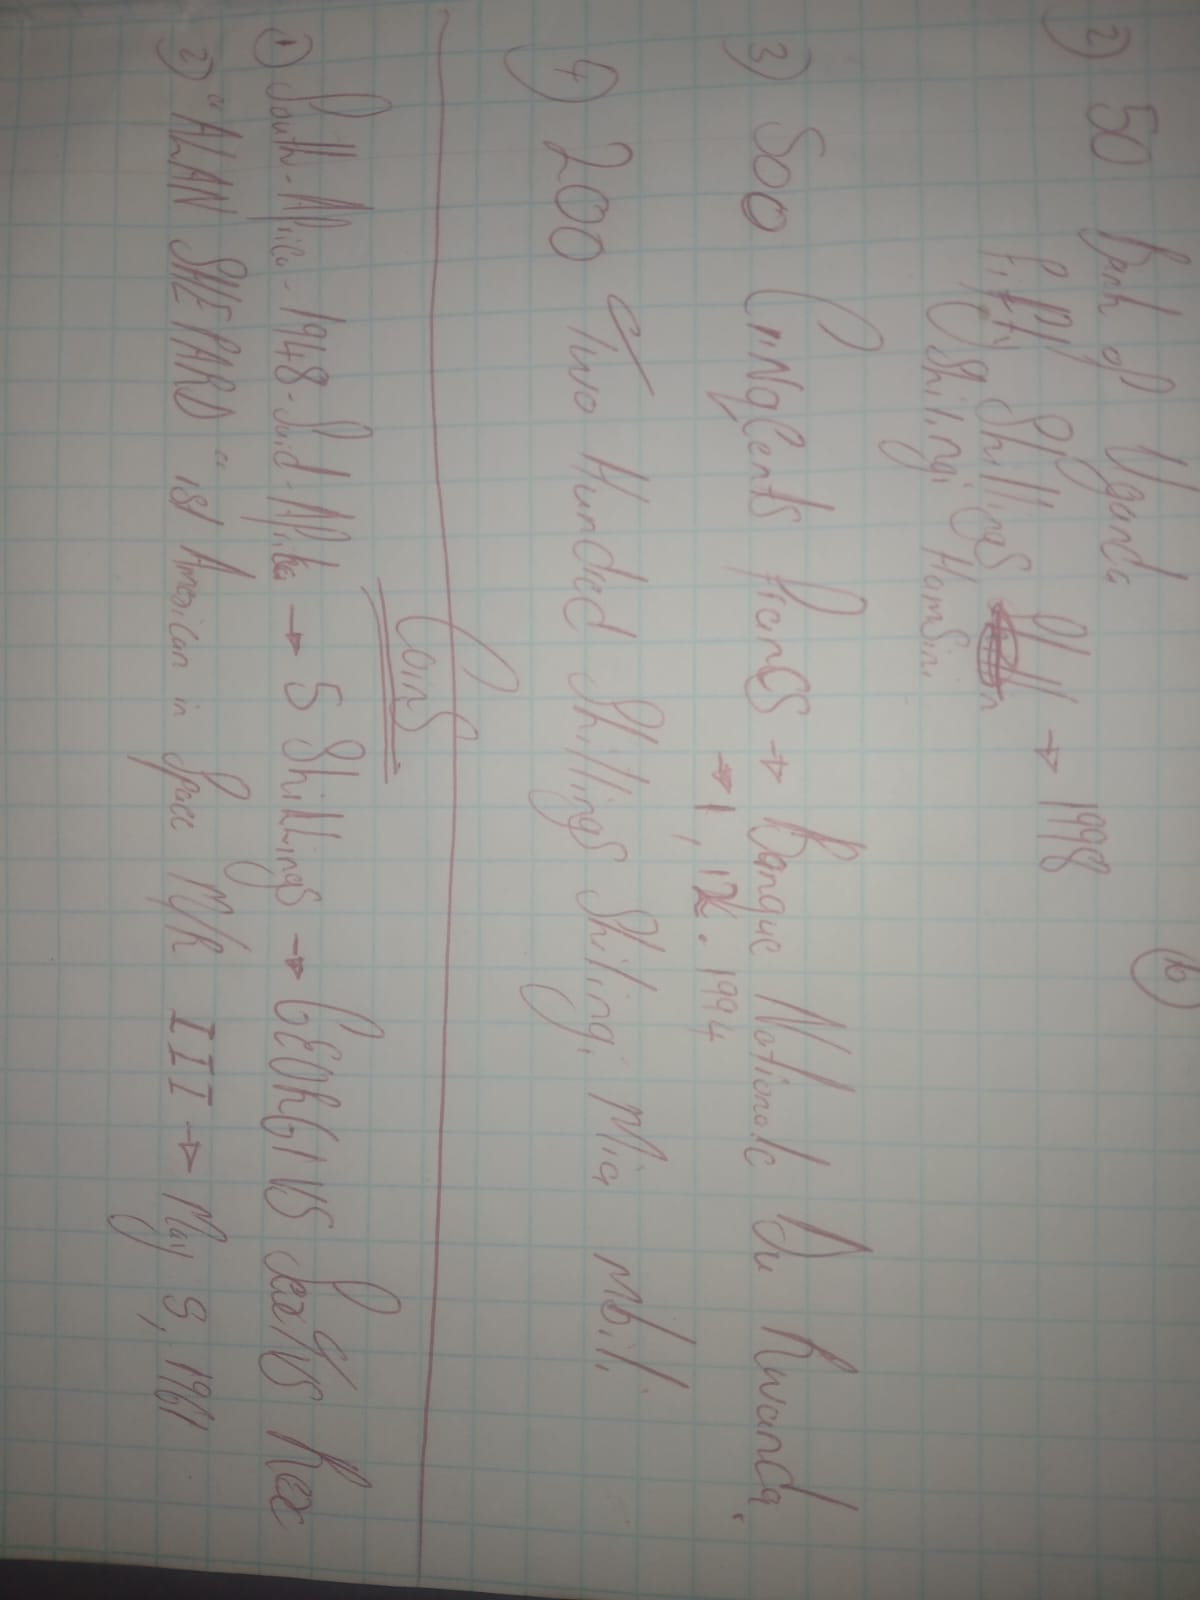 16
2) 50 Bank of Uganda
Fifty Shillings
Shilingi Hamsini
→ 1998
3) 500 CinqCents Francs → Banque Nationale Du Rwanda
→ 1, 12. 1994
4) 200 Two Hundred Shillings Shilingi Mia mbili
Coins
1) South-Africa-1948-Suid-Afrika → 5 Shillings → GEORGIVS SextVS Rex
2) "ALAN SHEPARD" 1st American in Space M/R III → May 5, 1961